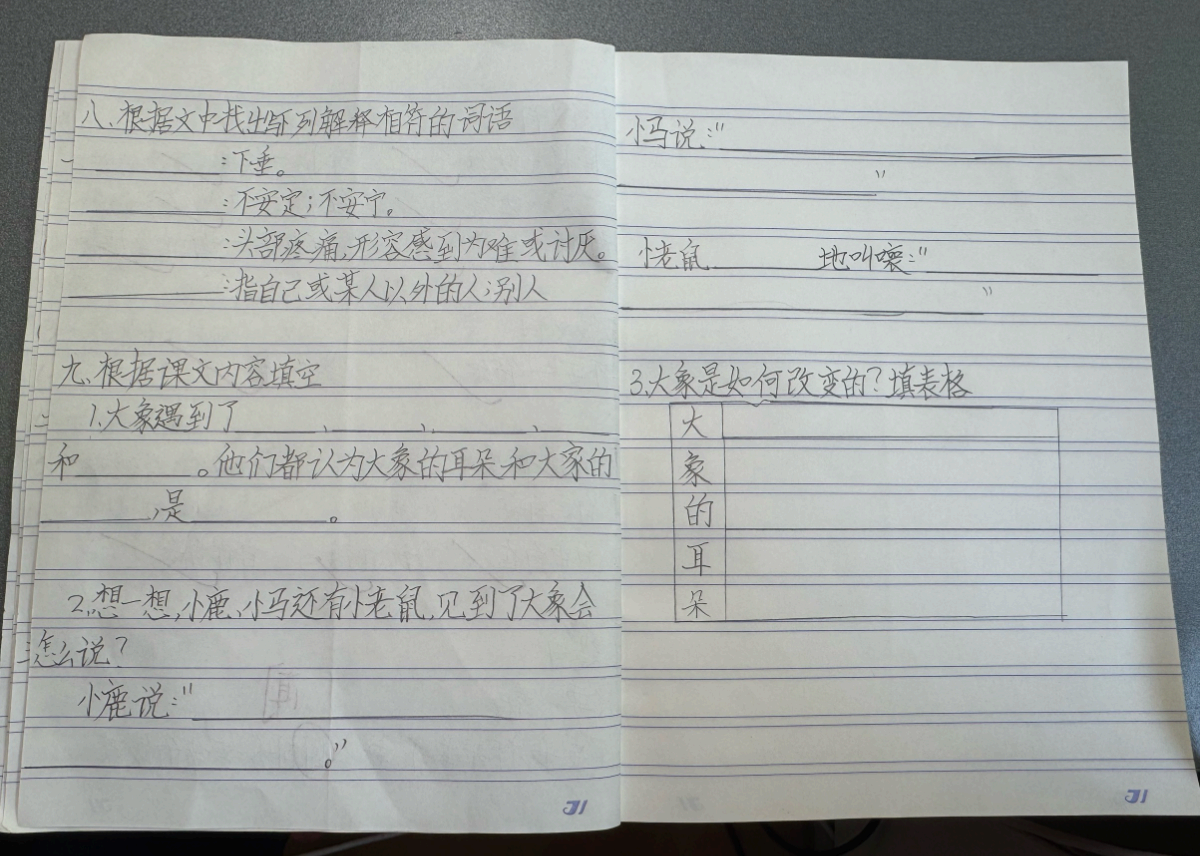 八、根据文中找出与下列解释相符的词语
:下垂。
:不安定;不安宁。
:头部疼痛,形容感到为难或讨厌。
:指自己或某人以外的人;别人
九、根据课文内容填空
1.大象遇到了 、 、 、
和 。他们都认为大象的耳朵和大家的
,是 。
2.想一想,小鹿、小马还有小老鼠,见到了大象会
怎么说?
小鹿说:"
。"
小马说:"
"
小老鼠 地叫嚷:"
"
3.大象是如何改变的?填表格
大
象
的
耳
朵